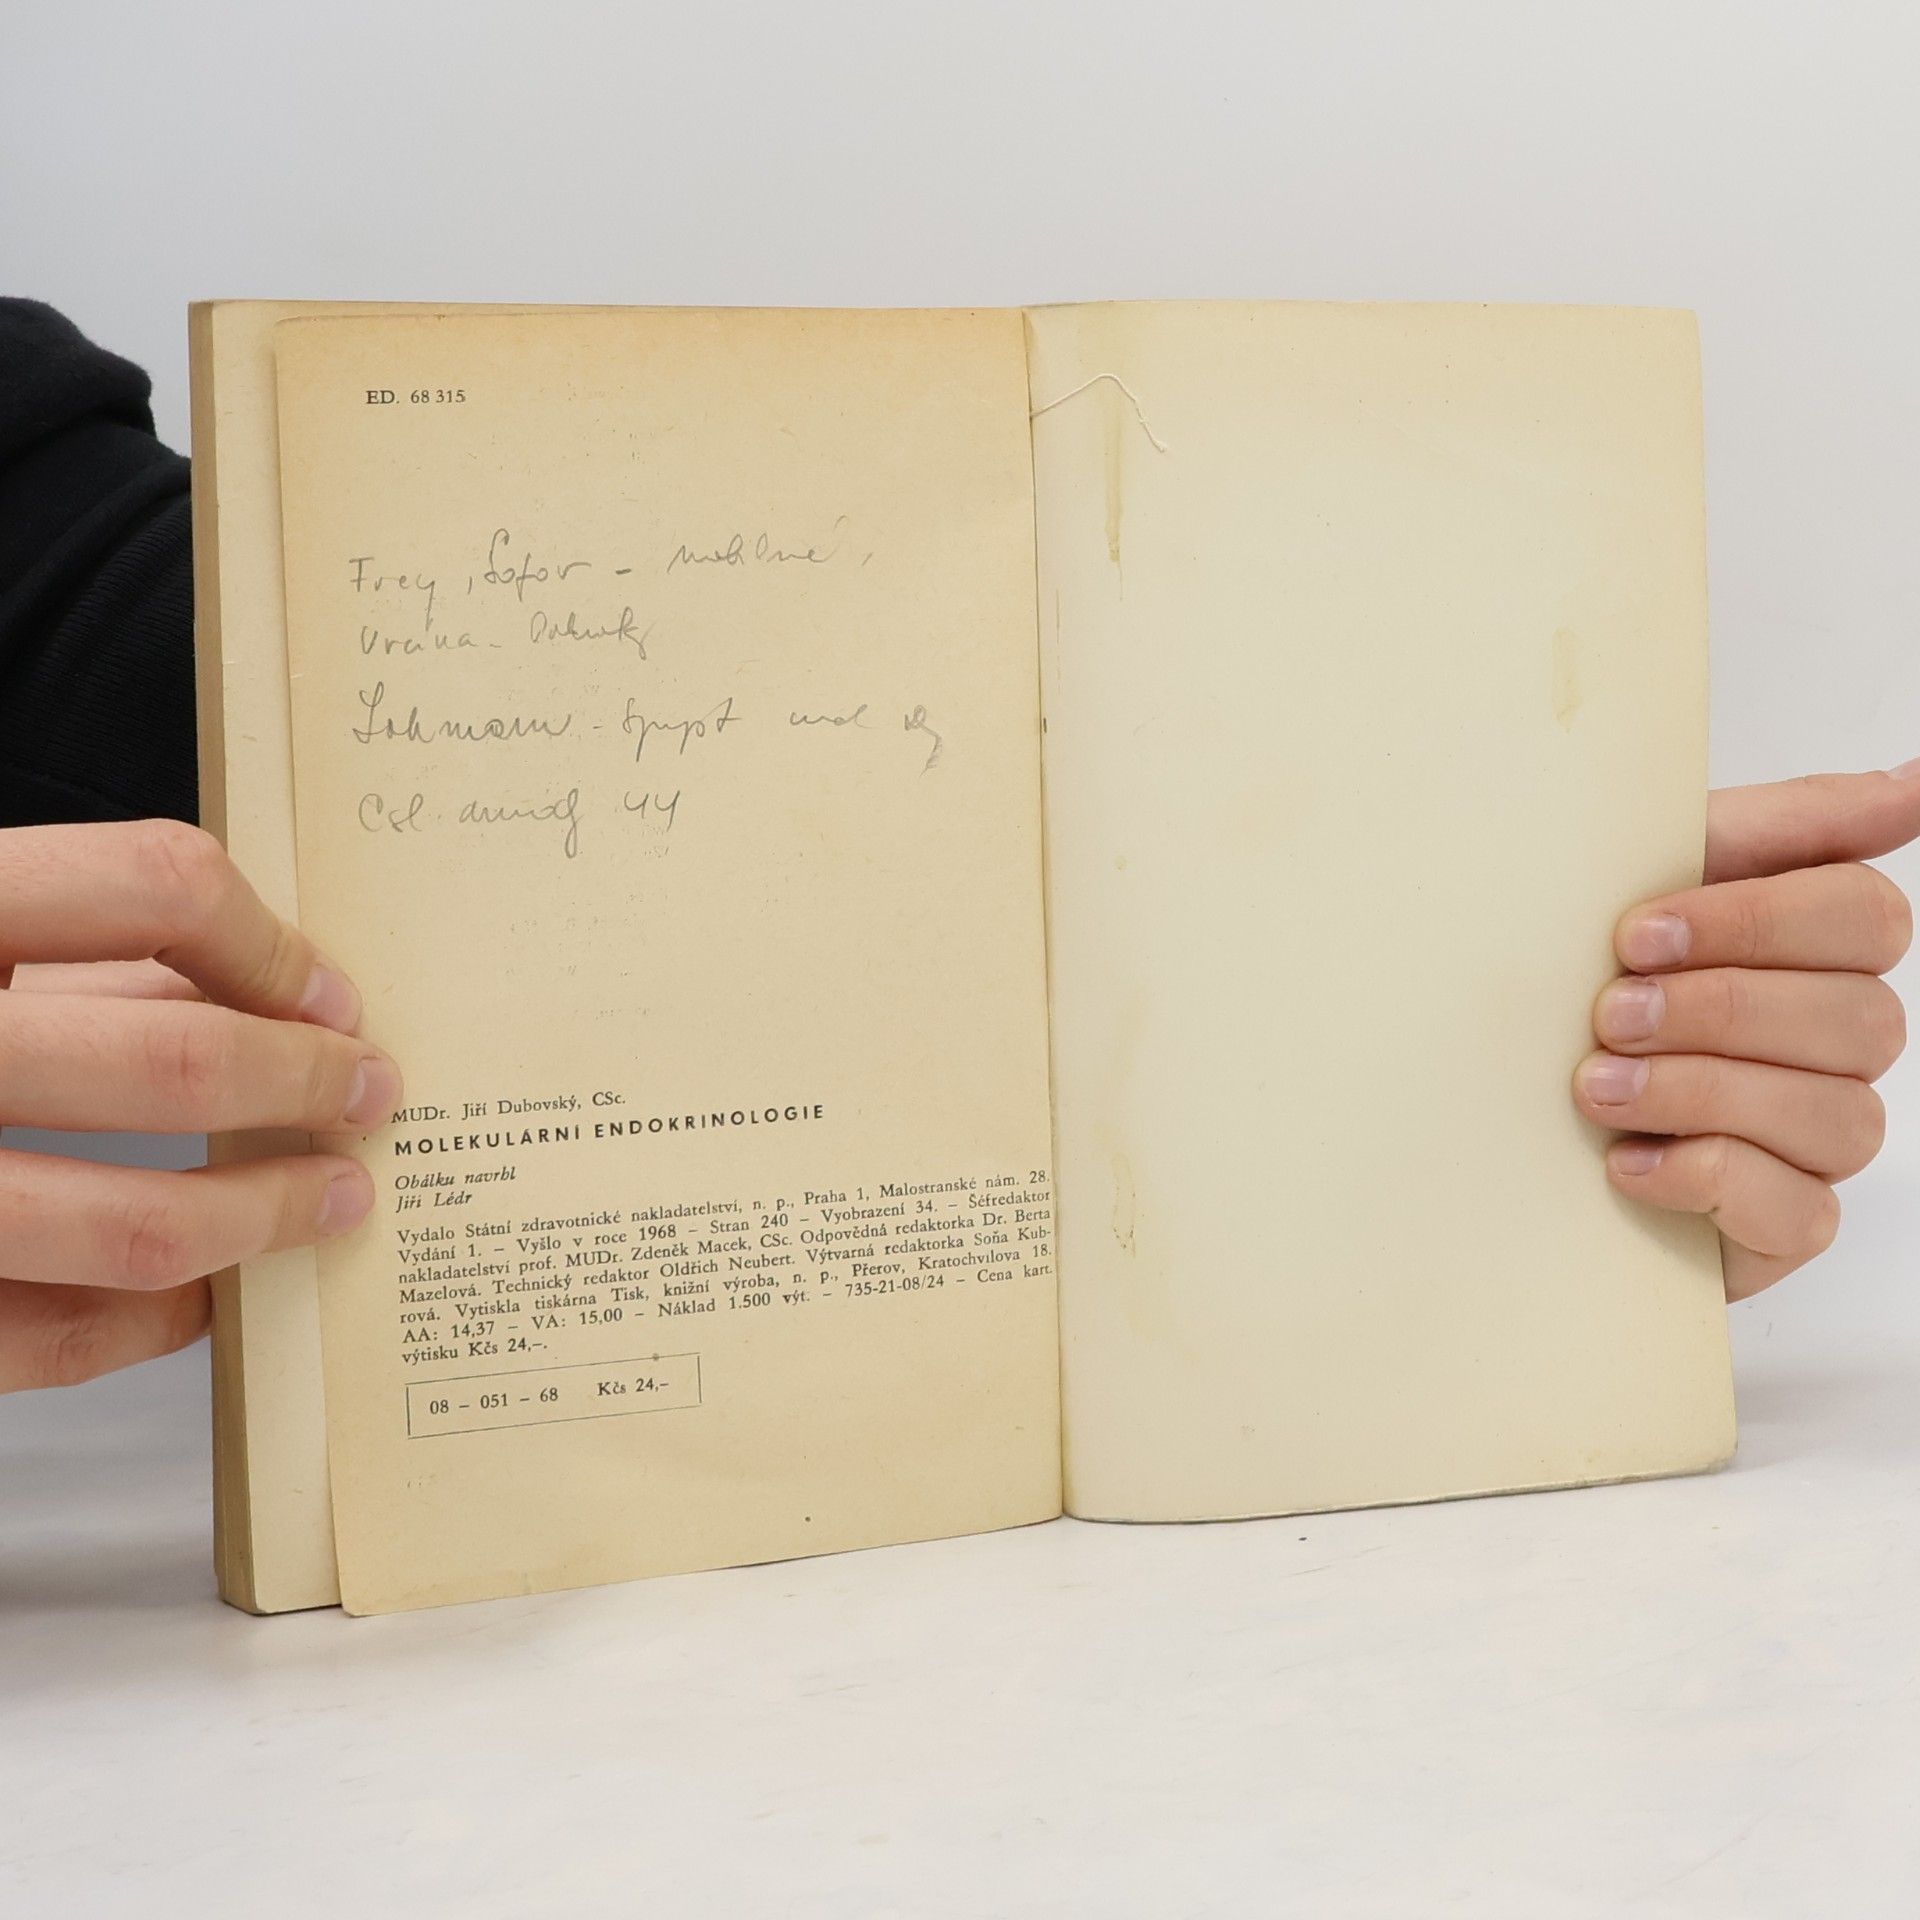 ED. 68 315
Frey,
Csl. 44
MUDr. Jiří Dubovský, CSc.
MOLEKULÁRNÍ ENDOKRINOLOGIE
Obálku navrhl
Jiří Lédr
Vydalo Státní zdravotnické nakladatelství, n. p., Praha 1, Malostranské nám. 28.
Vydání 1. – Vyšlo v roce 1968 – Stran 240 – Vyobrazení 34. – Šéfredaktor
nakladatelství prof. MUDr. Zdeněk Macek, CSc. Odpovědná redaktorka Dr. Berta
Mazelová. Technický redaktor Oldřich Neubert. Výtvarná redaktorka Soňa Kub-
rová. Vytiskla tiskárna Tisk, knižní výroba, n. p., Přerov, Kratochvílova 18.
AA: 14,37 – VA: 15,00 – Náklad 1.500 výt. – 735-21-08/24 – Cena kart.
výtisku Kčs 24,–.
08 – 051 – 68 Kčs 24,–